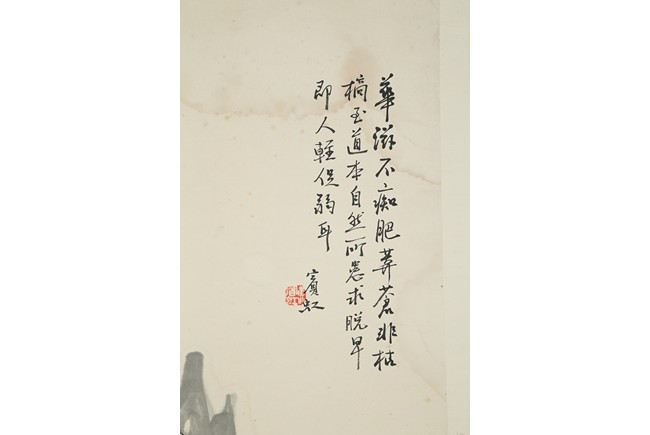 華滋不痴肥莽蒼非枯
槁至道本自然所患求脫早
即人輕促弱耳
賓虹